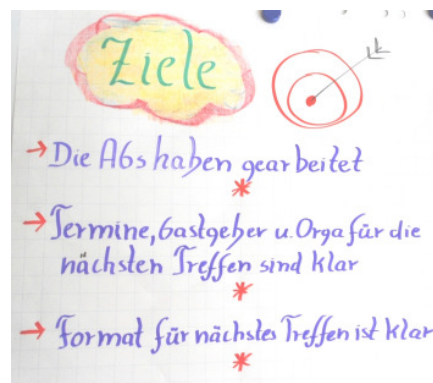 Ziele
→ Die A6s haben gearbeitet
*
→ Termine, Gastgeber u. Orga für die
nächsten Treffen sind klar
*
→ Format für nächstes Treffen ist klar
*